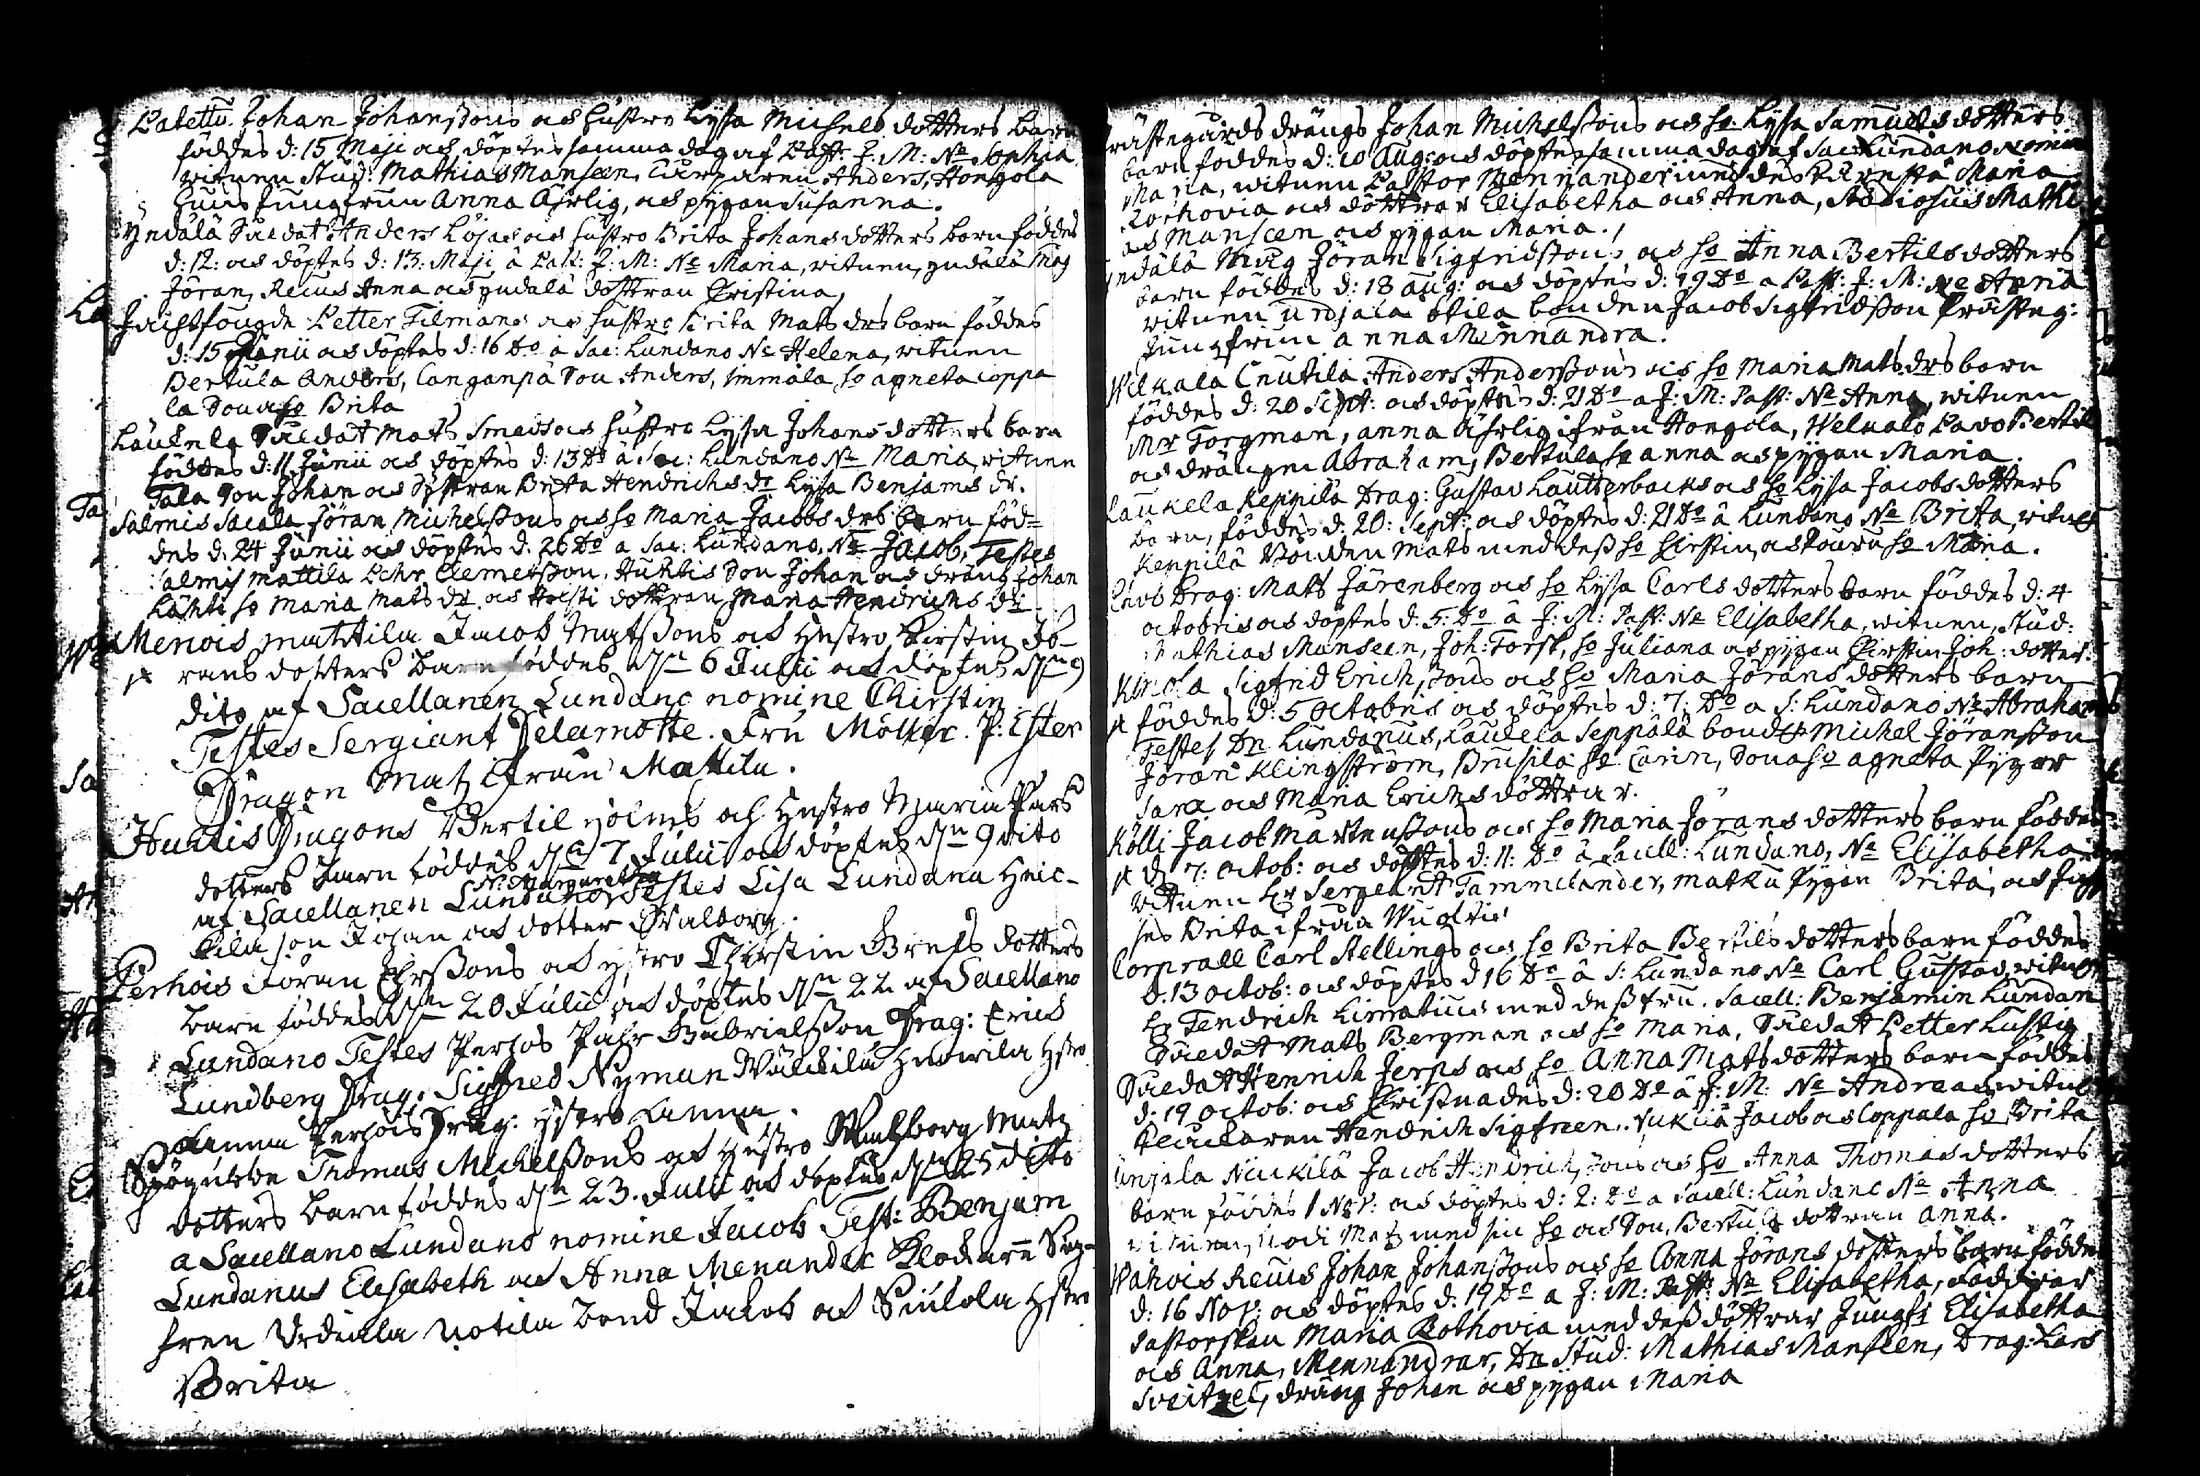 Latettu Johan Johanßons och hustro Lyssa Michels dotters barn
föddes d: 15 Maji och döptes samma dag af Past: J: M: Nē Sophia
witnen Stud: Mathias Manseen, Anders, Hongola
Jungfrun Anna Ährlig, och pygan Susanna.
yndälä Sāldat Anders Löjas och hustro Brita Johans dotters barn föddes
d: 12: och döptes d: 13: Maji a Past: J: M: Nē Maria, witnen, yndälä
Jöran, Reius Anna och yndälä dottran Christina,
Petter Tilmans och hustro Brita Mats drs barn föddes
d: 15 Junii och döptes d: 16 Do â Sac: Lundano Nē Helena, witnen
Bertula Anders, Canganpä Son Anders, Immäla, ho agneta coppa
la Sonaho Brita
Laukela Sāldat Mats Smads och hustro Lyssa Johans dotters barn
föddes d: 11 Junii och döptes d: 13 Do â Sac: Lundano Nē Maria, witnen
Tala Son Johan och Systran Brita Hendrichs dr Lyssa Benjams dr.
Salmis Sacala Jöran Michelßons och ho Maria Jacobs drs barn föd=
des d: 24 Junii och döptes d: 26 Do a Sac: Lundano, Nē Jacob, Testes
Salmis Mattila Pehr Clemetßon, Huhtis Son Johan och dräng Johan
Lähti ho Maria Mats dr och Hosti dottran Maria Hendrichs dr
Menois mattila Jacob Matßons och Hustro Kirstin Jö-
rans dotters barn föddes dn 6 Julii och döptes dn 9
dito af Sacellanen Lundano nomine Chirstin
Testes Sergiant Delamotte. Fru Möller. P: Ester
Dragon Matz från Mattila.
Huhtis Dragons Bertil Holms och Hustro Maria Pärs
dotters barn föddes dn 7 Julii och döptes dn 9 dito
N: Margaretha
af Sacellanen Lundano, Testes Lisa Lundana Heic-
kilä son Johan och dotter Walborg.
Perhois Jöran Ehrßons och hstro Chirstin Brels dotters
barn föddes dn 20 Julii och döptes dn 22 af Sacellano
Lundano Testes Perhos Pähr Gabrielßon Drag: Erics
Lundberg Drag. Sigfred Nyman Wälikilä Hstro
Anna Perhois Drag: Hstro Anna.
Thomas Michelßons och Hustro Walborg Matz
dotters barn föddes dn 23. Julii och döptes dn 25 dito
a Sacellano Lundano nomine Jacob Test: Benjam
Lundanus Elisabeth och Anna Menander Klockarn Sig-
fren Urdiala Uotila bond Jakob och Siulola Hstro
Brita
Prästegårds drängs Johan Michelßons och ho: Lyssa Samuels dotters
barn föddes d: 10 Aug: och döptes samma dag af Sac Lundano Nomine
Maria, witnen Pastor Mennander Maria
Rothovia och döttrar Elisabetha och Anna, Studiosus Mathi
as Manseen och pygan Maria.
yndälä Jöran Sigfridßons och ho Anna Bertils dotters
barn föddes d: 18 aug: och döptes d: 19 Do a Past: J: M: Nē Anna
witnen Urdjala Otila bonden Jacob Sigfridßon Prästeg:
Jungfrun anna Mennandra.
Wilkala Cnutila Anders Anderßons och ho Maria Mats drs barn
föddes d: 20 Sept: och döptes d: 21 Do a J: M: Past: Nē Anna, witnen
Mr Torgman, anna Ährlig ifrån Hongola, Welkala Pavo Bertil
och drängen Abraham, Bertula ho anna och pygan Maria.
Laukela Keppilä Drag: Gustav Lautterbacks och ho Lyssa Jacobs dotters
barn, föddes d: 20: Sept: och döptes d: 21 Do â Lundano Nē Brita, witnen
Keppilä Bonden Mats med deß ho Chirstin, och ho Maria.
Drag: Mats Järenberg och ho Lyssa Carls dotters barn föddes d: 4
octobris och döptes d: 5: Do â J: M: Past: Nē Elisabetha, witnen, Stud:
Mathias Manseen, Joh: Forsk, ho Juliana och pygan Chirstin Joh: dotter:
Kinola Sigfrid Erichßons och ho Maria Jörans dotters barn
föddes d: 5 octobris och döptes d: 7: Do a S: Lundano Nē Abraham
Testes Dn Lundanus, Laukela Seppälä bonde Michel Jöranßon
Jöran Klingström, Brusila ho Carin, Sonaho agneta Pygor
Sara och Maria Erichs döttrar.
Kölli Jacob Martenßons och ho Maria Jörans dotters barn föddes
d: 7: octob: och döptes d: 11: Do â Sacell: Lundano, Nē Elisabetha
witnen Hr Sergeant Tammelander, matku Pygan Brita, och
Brita ifrån
Corprall Carl Stellings och ho Brita Bertils dotters barn föddes
d. 13 octob: och döptes d 16 Do â S: Lundano Nē Carl Gustav, witnen
Hr Fendrich Limatius med deß fru. Sacell: Benjamin Lundan
Sāldat Mats Bergman och ho Maria, Sāldat Petter Lustig
Sāldat Henrich Jerps och ho Anna Mats dotters barn föddes
d: 19 octob: och Christnades d: 20 Do â J: M: Nē Andreas witnen
Kläckaren Hendrich Sigfreen, Jacob och Coppala ho Brita
Nuckilä Jacob Hendrichßons och ho Anna Thomas dotters
barn föddes 1 Nov: och döptes d: 2: Do a Sacell: Lundano Nē Anna
witnen, Mats med sin ho och Son, Bertula dottran anna.
Wahois Reius Johan Johanßons och ho Anna Jörans dotters barn föddes
d: 16 Nov: och döptes d: 19 Do a J: M: Past: Nē Elisabetha, Faddrar
Pastorskan Maria Rothovia med deß döttrar Jungfr Elisabetha
och Anna, Mennandrar, Dn Stud: Mathias Manseen, Drag: Lars
Sveitzel, dräng Johan och pygan Maria